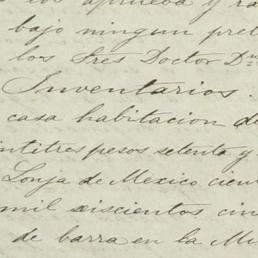 los aprueba y ra
bajo ningun pret
los Sres Doctor Dn
Inventarios.
casa habitacion de
intitres pesos setenta y
Lonja de Mexico cien
mil seiscientos cin
de barra en la Mi